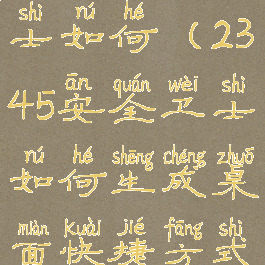 shì rú hé
士如何(23
ān quán wèi shì
45安全卫士
rú hé shēng chéng zhuō
如何生成桌
miàn kuài jié fāng shì
面快捷方式